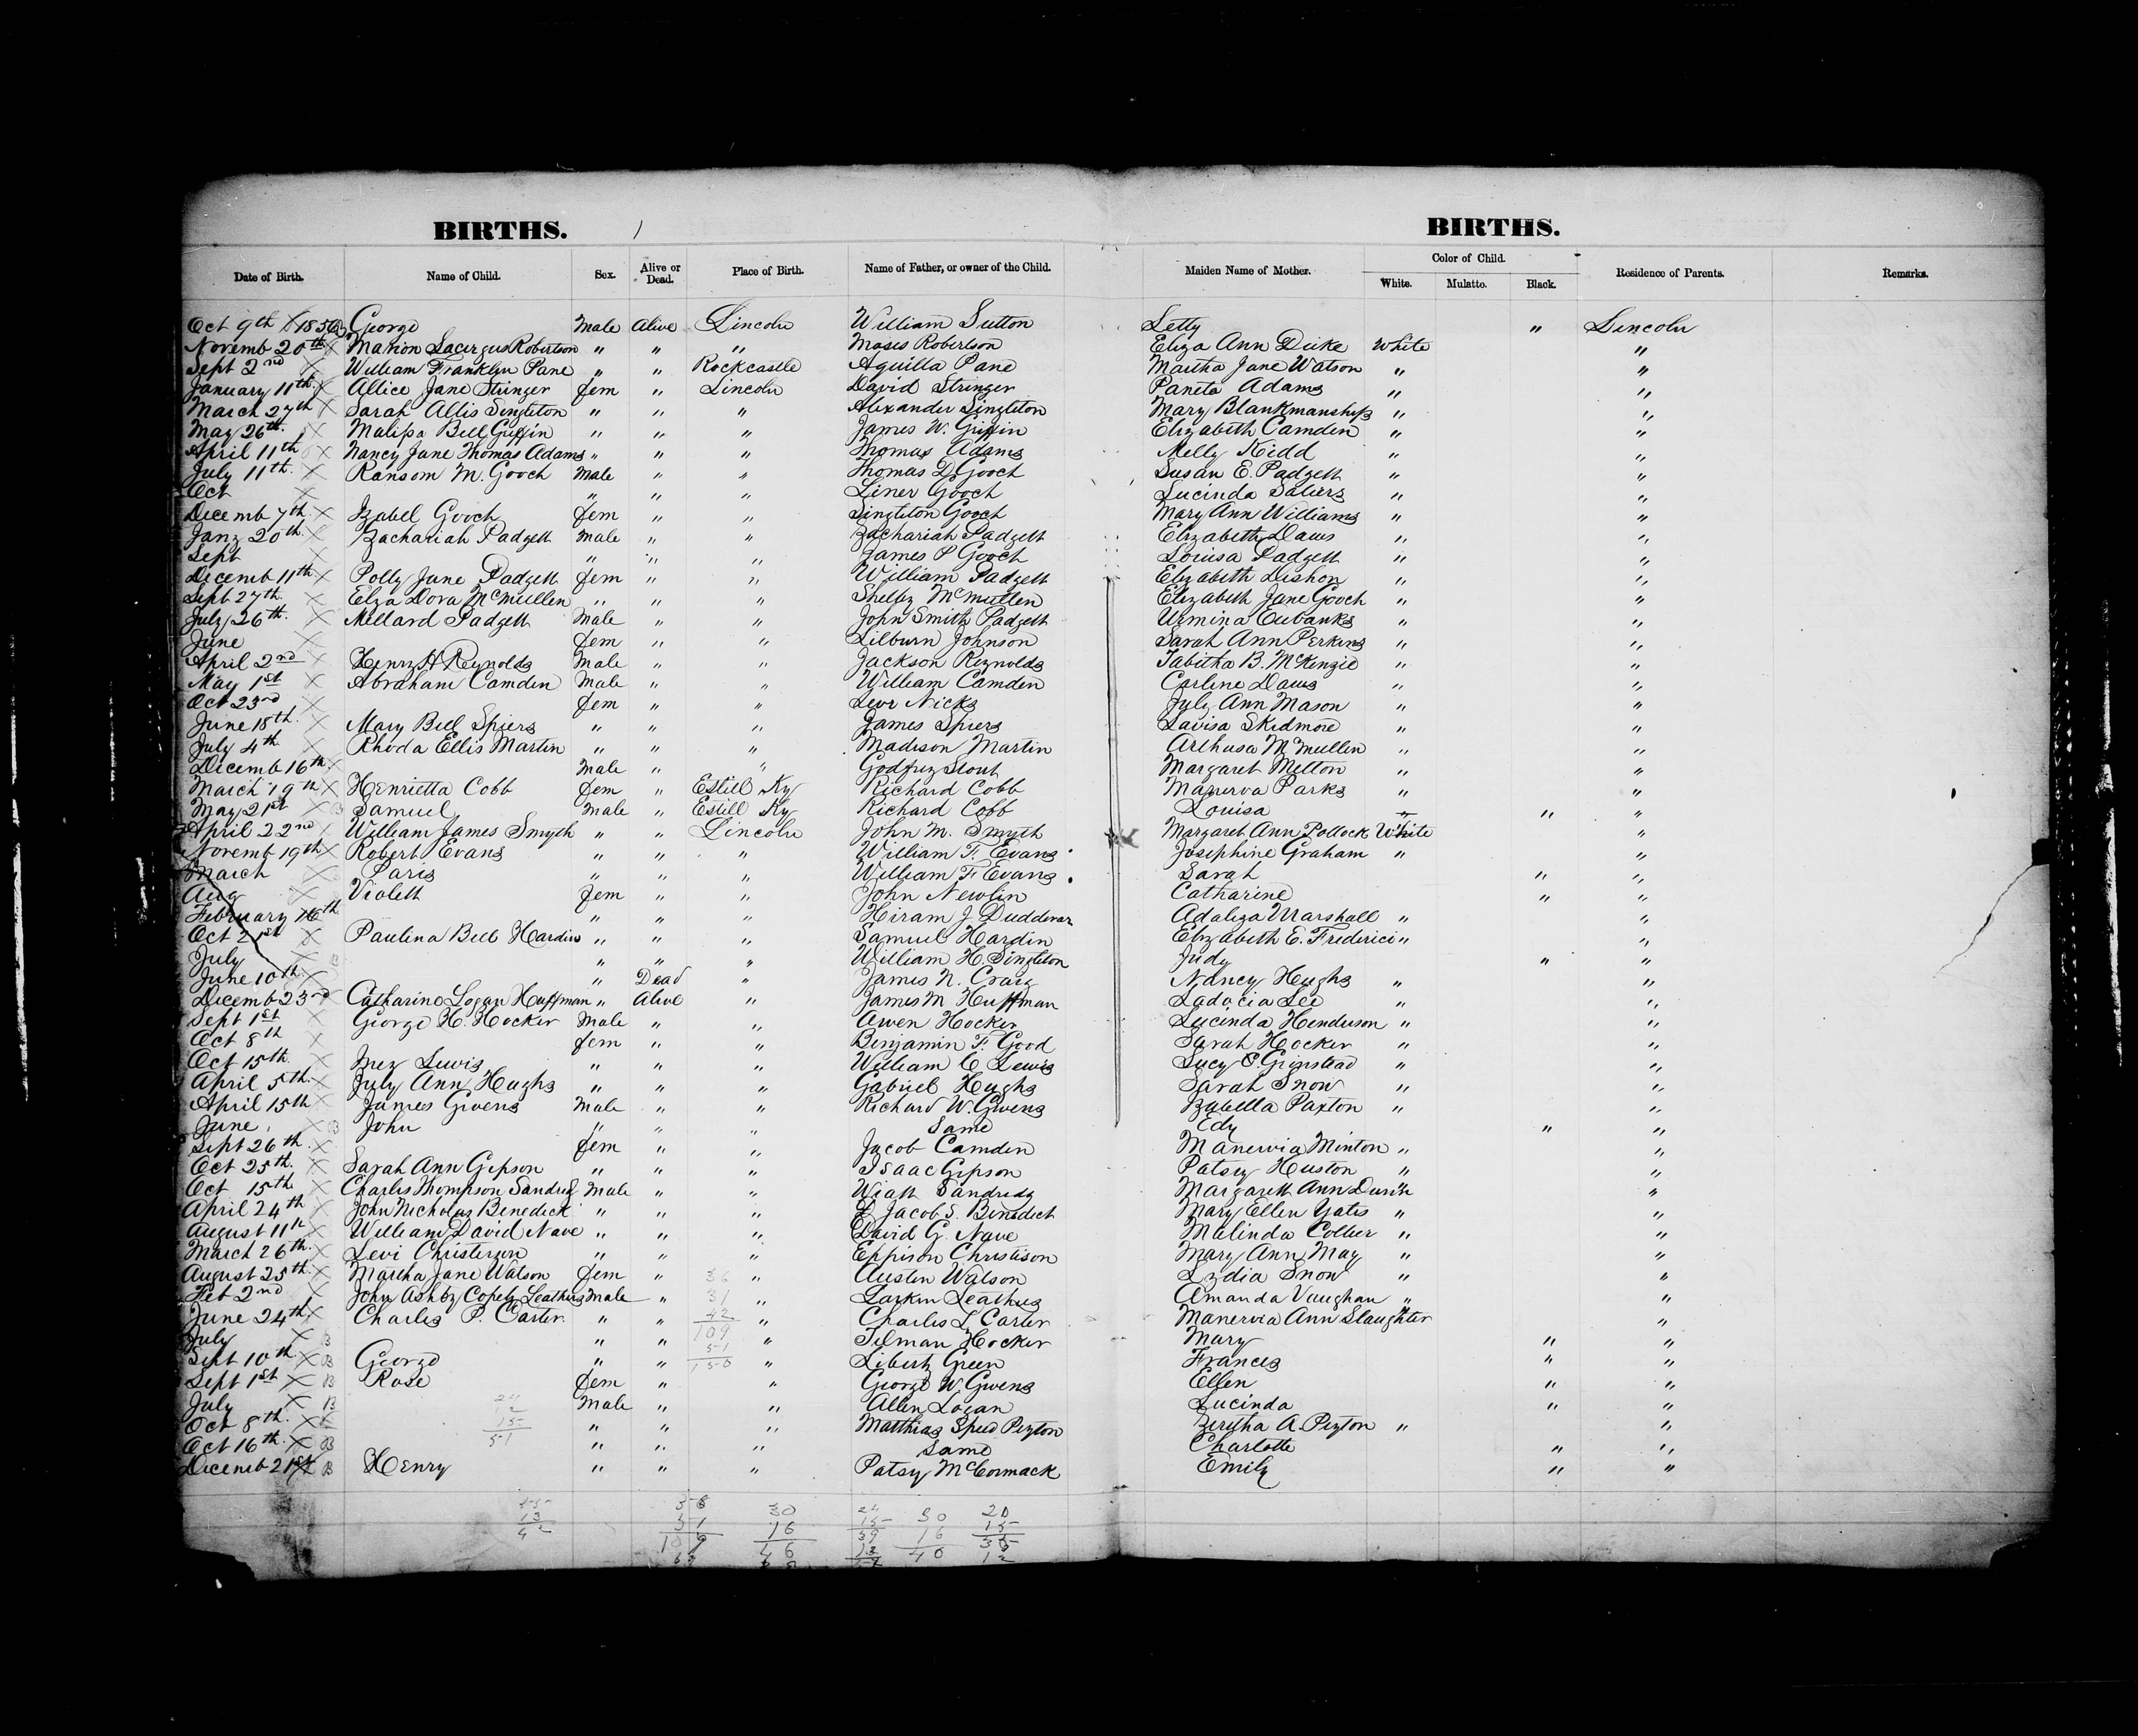 BIRTHS. 1 BIRTHS.
Date of Birth. Name of Child. Sex. Alive or Dead. Place of Birth. Name of Father, or owner of the Child. Maiden Name of Mother. Color of Child. White. Mulatto. Black. Residence of Parents. Remarks.
Oct 9th 1856 George Male Alive Lincoln William Sutton Letty " Lincoln
Novemb 20th Marion Robertson " " " Moses Robertson Eliza Ann Dicke White "
Sept 2nd William Franklin Pane " " Rockcastle Aquilla Pane Martha Jane Watson " "
January 11th Allice Jane Stringer Fem " Lincoln David Stringer Paneta Adams " "
March 27th Sarah Allis Singleton " " " Alexander Singleton Mary Blankmanship " "
May 26th Malissa Bell Griffin " " " James W. Griffin Elizabeth Camden " "
April 11th Nancy Jane Thomas Adams " " " Thomas Adams Melly Kidd " "
July 11th Ransom M. Gooch Male " " Thomas D. Gooch Susan E. Padgett " "
Oct " " " Liner Gooch Lucinda Saliers " "
Decemb 7th Izabell Gooch Fem " " Singleton Gooch Mary Ann Williams " "
Jany 20th Zachariah Padgett Male " " Zachariah Padgett Elizabeth Daws " "
Sept " " " James P Gooch Louisa Padgett " "
Decemb 11th Polly Jane Padgett Fem " " William Padgett Elizabeth Dishon " "
Sept 27th Elza Dora McMullen " " " Shelby McMullen Elizabeth Jane Gooch " "
July 26th Millard Padgett Male " " John Smith Padgett Urmina Eubanks " "
June Fem " " Lilburn Johnson Sarah Ann Perkins " "
April 2nd Henry H Reynolds Male " " Jackson Reynolds Tabitha B. McKenzie " "
May 1st Abraham Camden Male " " William Camden Carline Daws " "
Oct 23rd Fem " " Levi Nicks July Ann Mason " "
June 18th Mary Bell Spiers " " " James Spiers Lavisa Skidmore " "
July 4th Rhoda Ellis Martin " " " Madison Martin Arthusa McMullen " "
Decemb 16th Male " " Godfrey Stout Margaret Melton " "
March 19th Henrietta Cobb Fem " Estill Ky Richard Cobb Manerva Parks " "
May 21st B Samuel Male " Estill Ky Richard Cobb Louisa " "
April 22nd William James Smyth " " Lincoln John M. Smyth Margaret Ann Pollock White "
Novemb 19th Robert Evans " " " William F. Evans Josephine Graham " "
March Paris " " " William F Evans Sarah " "
Aug Violett Fem " " John Newlin Catharine " "
February 16th " " " Hiram J. Dudderar Adaliza Marshall " "
Oct 21st Paulina Bell Hardin " " " Samuel Hardin Elizabeth E. Frederici " "
July B " " " William H. Singleton Judy " "
June 10th " Dead " James N. Craig Nancy Hughs " "
Decemb 23rd Catharine Logan Huffman " Alive " James M Huffman Ladocia Lee " "
Sept 1st George H. Hocker Male " " Awen Hocker Lucinda Henderson " "
Oct 8th Fem " " Benjamin F. Good Sarah Hocker " "
Oct 15th Inez Lewis " " " William C Lewis Lucy E. Grimstead " "
April 5th July Ann Hughs " " " Gabriel Hughs Sarah Snow " "
April 15th James Givens Male " " Richard W. Givens Izabella Paxton " "
June B John " " " Same Edy " "
Sept 26th Fem " " Jacob Camden Manervia Minton " "
Oct 25th Sarah Ann Gipson " " " Isaac Gipson Patsy Huston " "
Oct 15th Charles Thompson Sandridg Male " " Wiatt Sandridg Margarett Ann " "
April 24th John Nicholas Benedick " " " Jacob S. Benedict Mary Ellen Yates " "
August 11th William David Nave " " " David G. Nave Malinda Collier " "
March 26th Levi Christerson " " " Eppison Christison Mary Ann May " "
August 25th Martha Jane Watson Fem " " Austin Watson Lydia Snow " "
Feb 2nd John Ashby Leathers Male " " Larkin Leathers Amanda Vaughan " "
June 24th Charles P. Carter " " " Charles L Carter Manervia Ann Slaughter " "
July B " " " Tilman Hocker Mary " "
Sept 10th B George " " " Liberty Green Frances " "
Sept 1st B Rose Fem " " George W. Givens Ellen " "
July B Male " " Allen Logan Lucinda " "
Oct 8th " " " Matthias Speed Peyton Zeritha A. Peyton " "
Oct 16th B " " " Same Charlotte " "
Decemb 21st B Henry " " " Patsy McCormack Emily " "